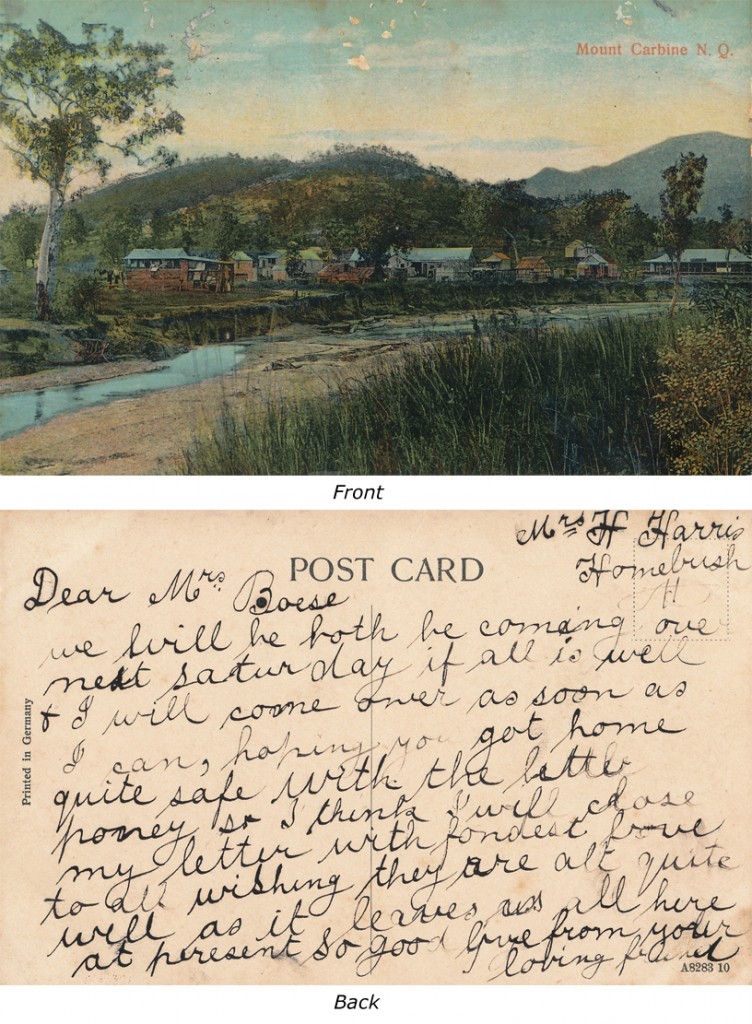 Mount Carbine N. Q.
Front
Mrs H Harris
Homebush
POST CARD
Dear Mrs. Boese
we will be both be coming over
next saturday if all is well
& I will come over as soon as
I can, hoping you got home
quite safe with the little
poney so I think I will close
my letter with fondest love
to all wishing they are all quite
will as it leaves us all here
at peresent so good bye from your
loving friend
Printed in Germany
A8283 10
Back